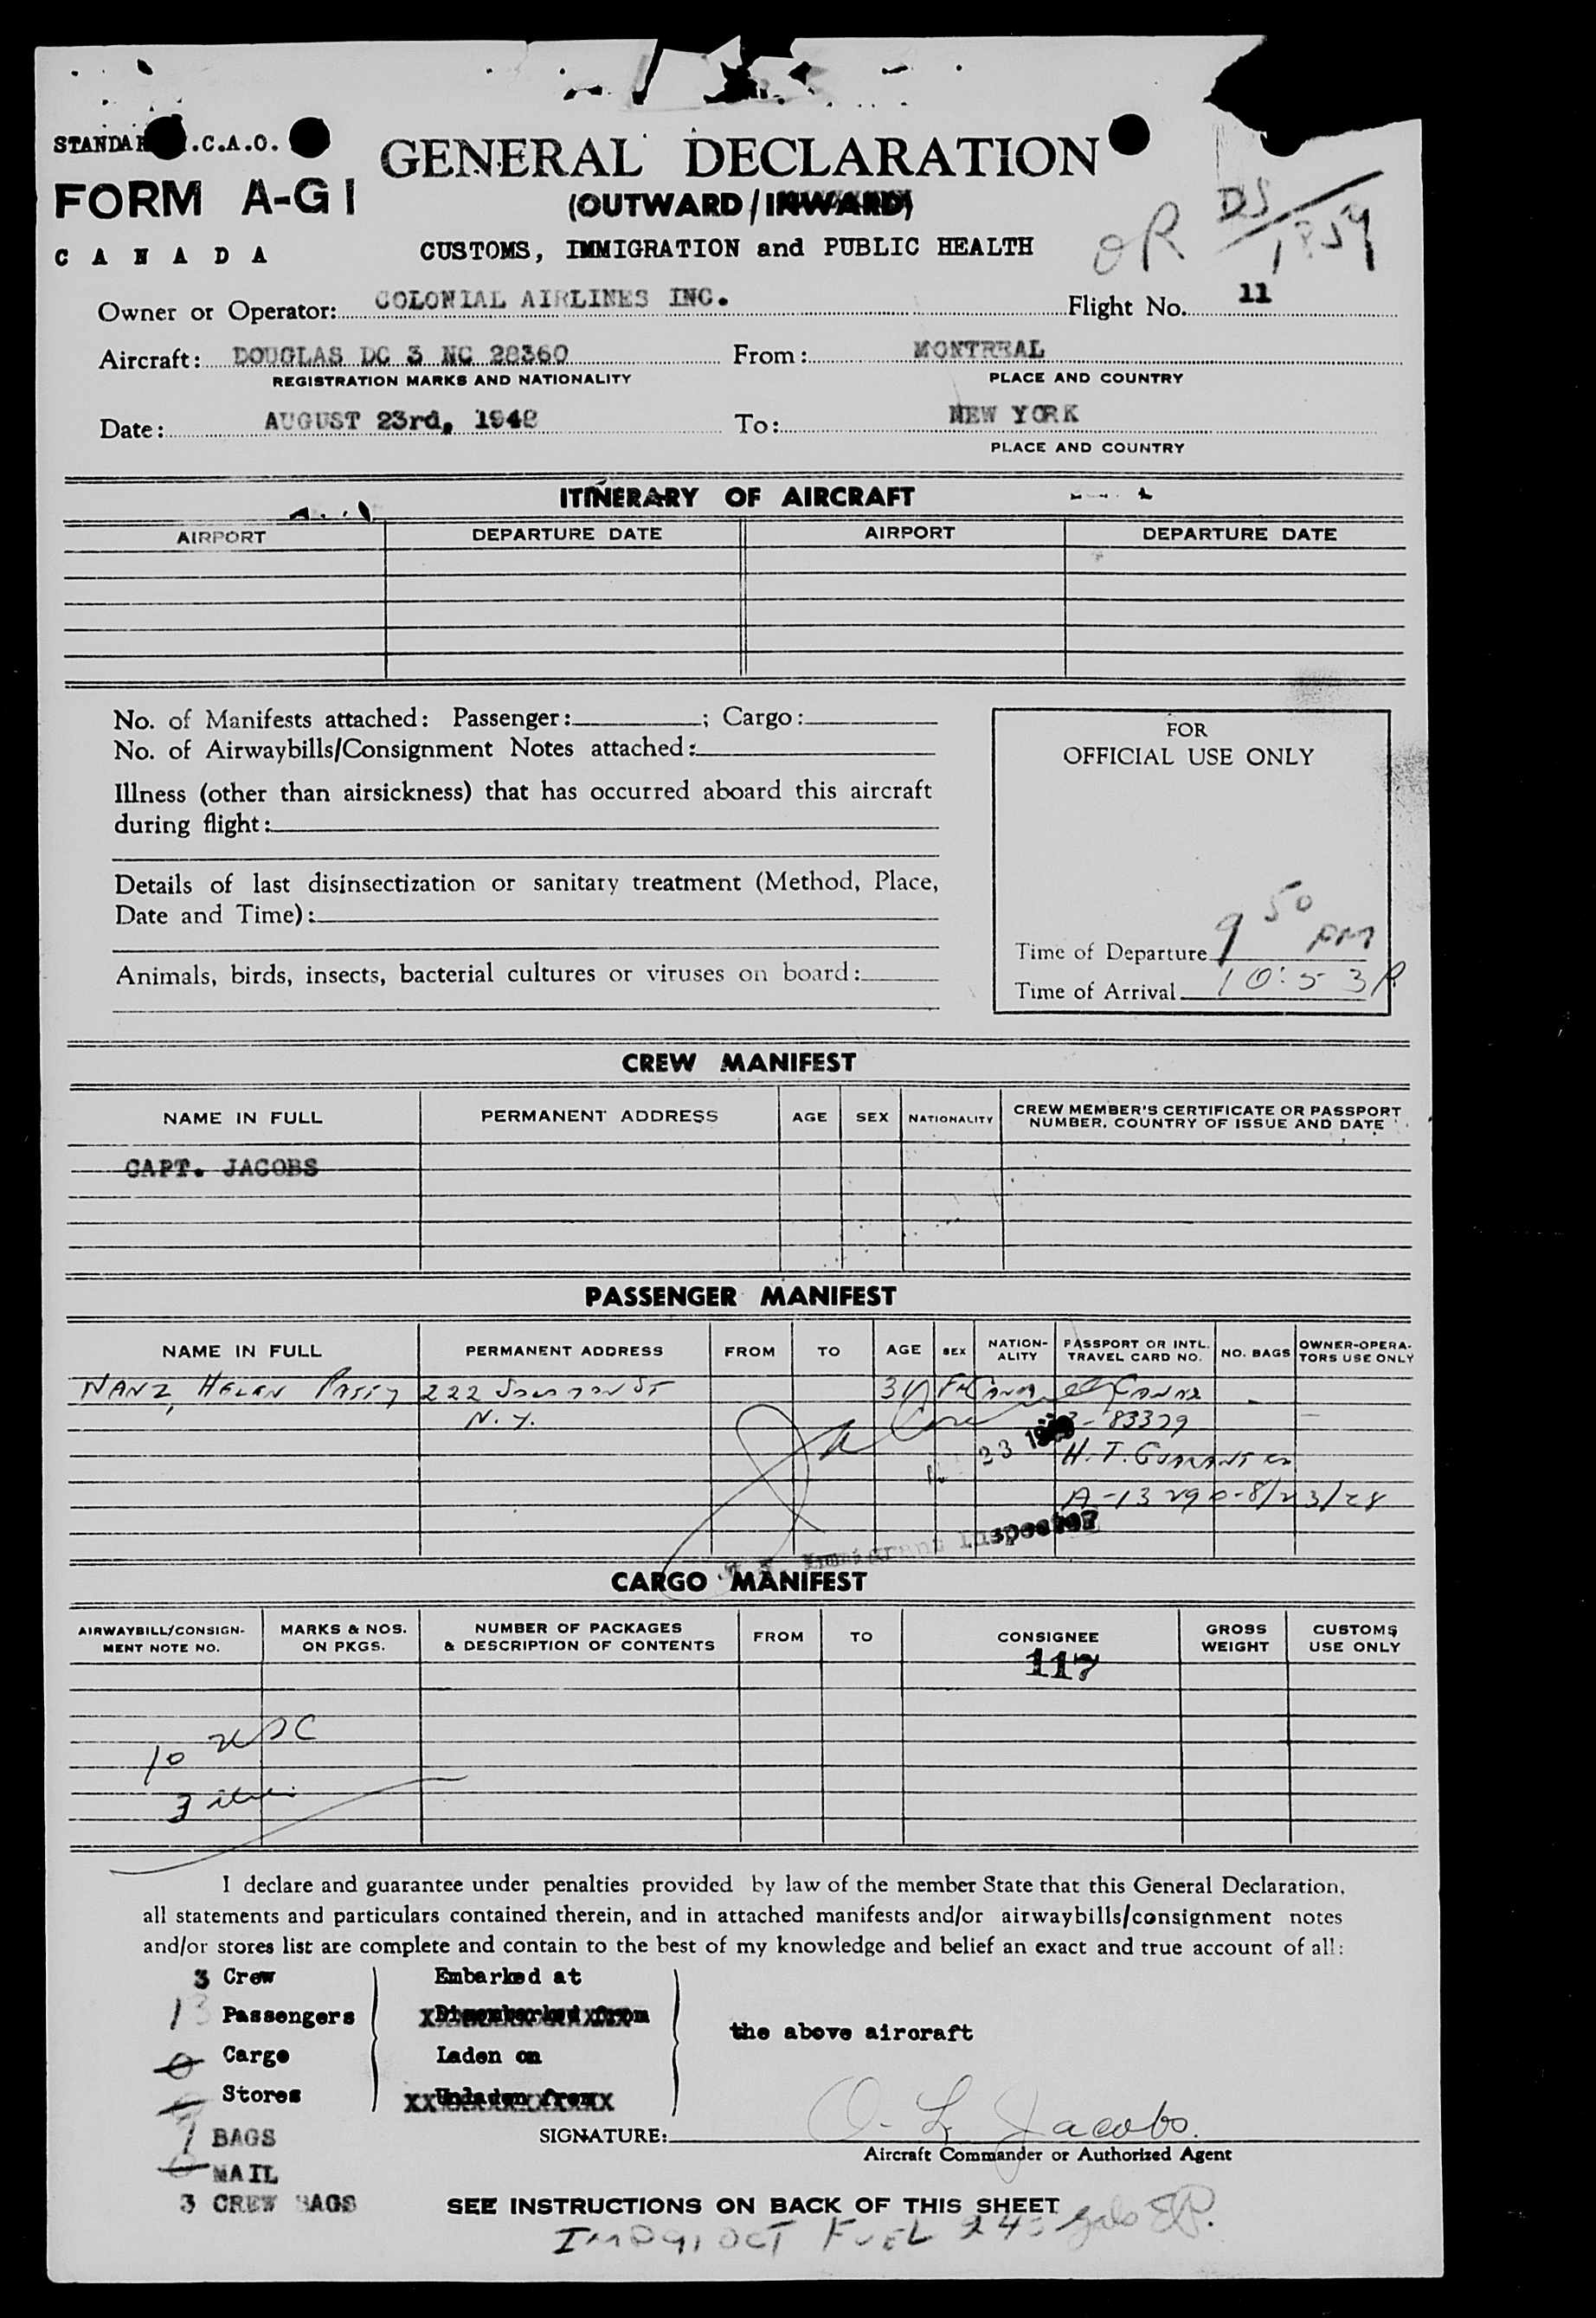 STANDARD I.C.A.O.
FORM A-G1
CANADA
GENERAL DECLARATION
(OUTWARD / INWARD)
CUSTOMS, IMMIGRATION and PUBLIC HEALTH
OR DS
Owner or Operator: COLONIAL AIRLINES INC. Flight No. 11
Aircraft: DOUGLAS DC 3 NC 28360 From: MONTREAL
REGISTRATION MARKS AND NATIONALITY PLACE AND COUNTRY
Date: AUGUST 23rd, 1948 To: NEW YORK
PLACE AND COUNTRY
ITINERARY OF AIRCRAFT
AIRPORT DEPARTURE DATE AIRPORT DEPARTURE DATE
No. of Manifests attached: Passenger: ; Cargo:
No. of Airwaybills/Consignment Notes attached:
Illness (other than airsickness) that has occurred aboard this aircraft
during flight:
Details of last disinsectization or sanitary treatment (Method, Place,
Date and Time):
Animals, birds, insects, bacterial cultures or viruses on board:
FOR
OFFICIAL USE ONLY
Time of Departure 9 50 PM
Time of Arrival 10:53 P.
CREW MANIFEST
NAME IN FULL PERMANENT ADDRESS AGE SEX NATIONALITY CREW MEMBER'S CERTIFICATE OR PASSPORT
NUMBER, COUNTRY OF ISSUE AND DATE
CAPT. JACOBS
PASSENGER MANIFEST
NAME IN FULL PERMANENT ADDRESS FROM TO AGE SEX NATION-
ALITY PASSPORT OR INTL.
TRAVEL CARD NO. NO. BAGS OWNER-OPERA-
TORS USE ONLY
NANZ, HELEN PATSY 222 ST
N.Y.
83379
23
H.T.
Immigrant Inspector
CARGO MANIFEST
AIRWAYBILL/CONSIGN-
MENT NOTE NO. MARKS & NOS.
ON PKGS. NUMBER OF PACKAGES
& DESCRIPTION OF CONTENTS FROM TO CONSIGNEE GROSS
WEIGHT CUSTOMS
USE ONLY
117
10 USC
3
I declare and guarantee under penalties provided by law of the member State that this General Declaration,
all statements and particulars contained therein, and in attached manifests and/or airwaybills/consignment notes
and/or stores list are complete and contain to the best of my knowledge and belief an exact and true account of all:
3 Crew Embarked at
13 Passengers Disembarked from
the above aircraft
0 Cargo Laden on
Stores Unladen from
BAGS
SIGNATURE: O. L. Jacobs.
Aircraft Commander or Authorized Agent
0 MAIL
3 CREW BAGS
SEE INSTRUCTIONS ON BACK OF THIS SHEET
91 OCT FUEL gals